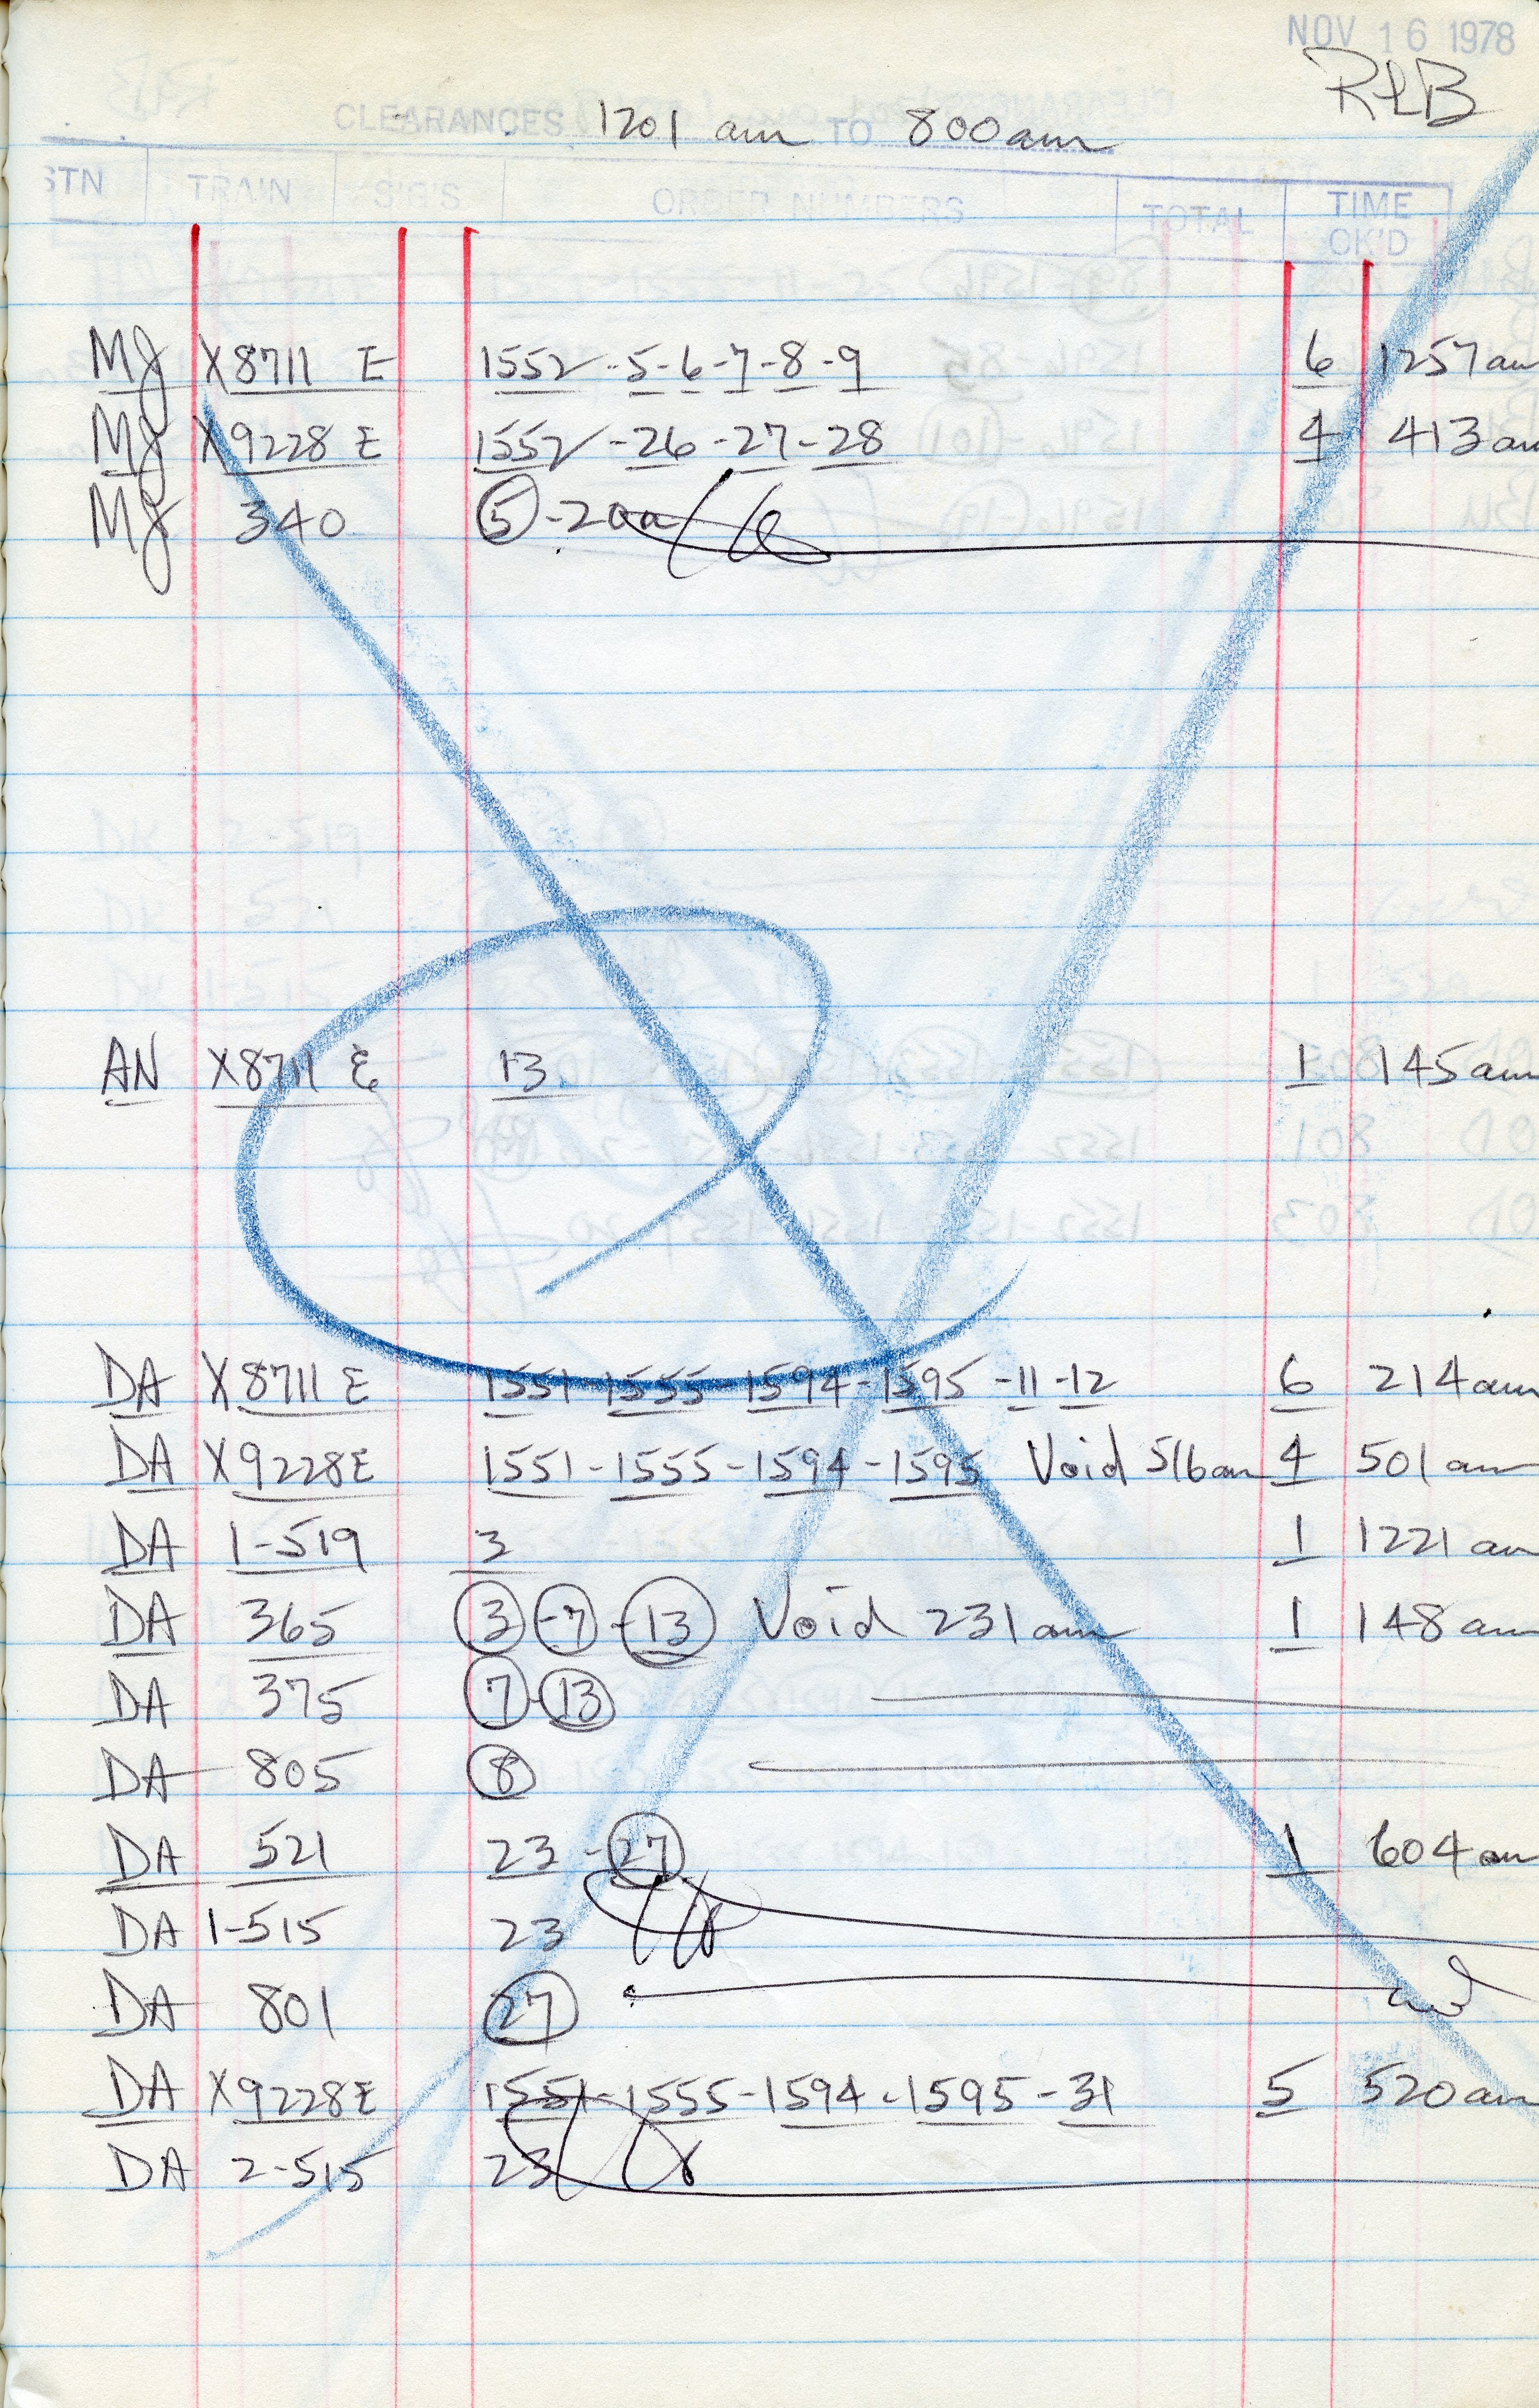 NOV 16 1978
RLB
CLEARANCES 1201 am TO 800am
STN TRAIN SIG'S ORDER NUMBERS TOTAL TIME OK'D
MJ X8711 E 1552 -5-6-7-8-9 6 1257am
MJ X9228 E 1552 -26-27-28 4 413am
MJ 340 5 -20
AN X8711 E 13 1 145am
DA X8711 E 1551-1555-1594-1595-11-12 6 214am
DA X9228E 1551-1555-1594-1595 Void 516am 4 501am
DA 1-519 3 1 1221am
DA 365 3-7-13 Void 231am 1 148am
DA 375 7-13
DA 805 8
DA 521 23-27 1 604am
DA 1-515 23
DA 801 27
DA X9228E 1551-1555-1594-1595-31 5 520am
DA 2-515 23